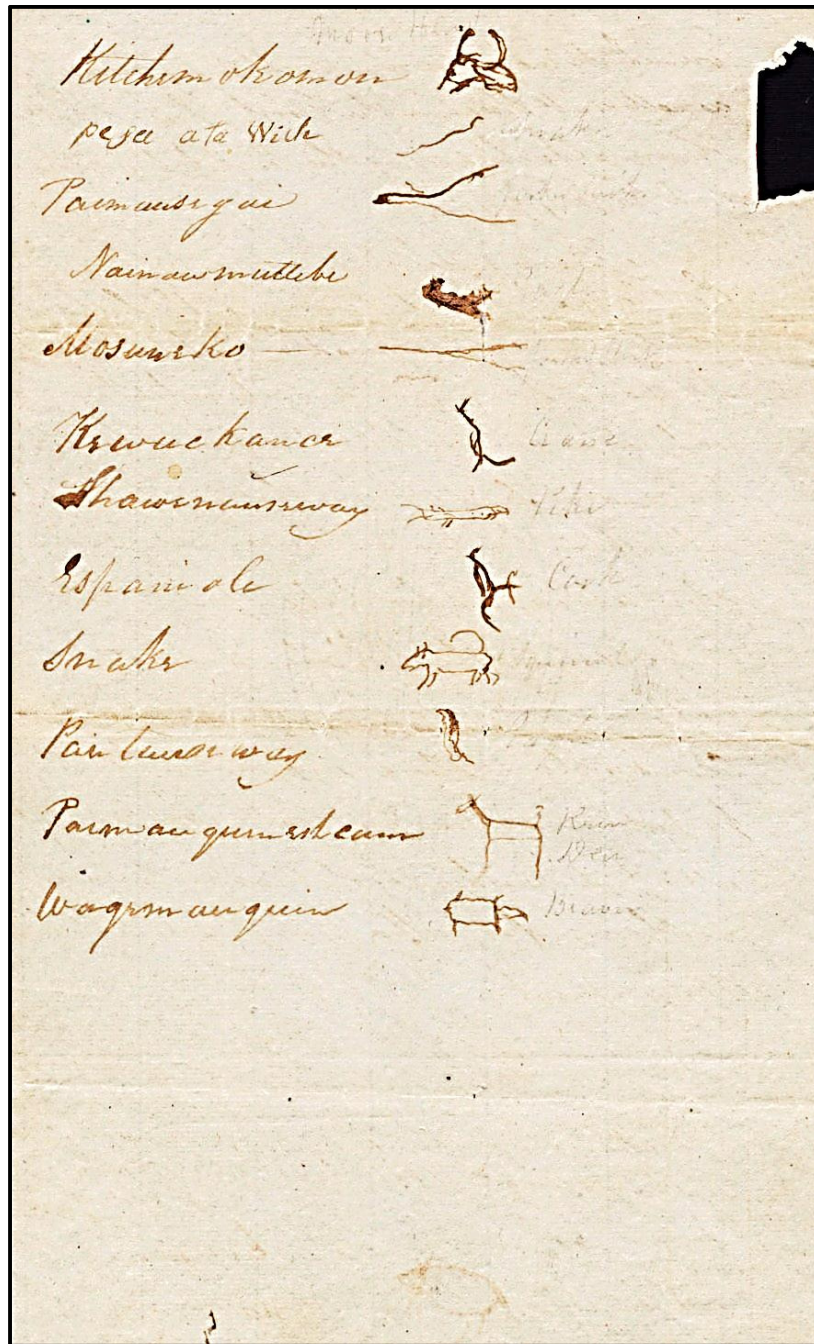 Moose Head
Kitchimokomon
pesa ata Wick
Snake
Paimausegai
Nainawmuttebe
Mosuneko
Kewuckance
Crane
Shawenauseway
Pike
Espaniole
Snake
Pairtauseway
Paimauquinesheam
Deer
Wagemauquin
Beaver